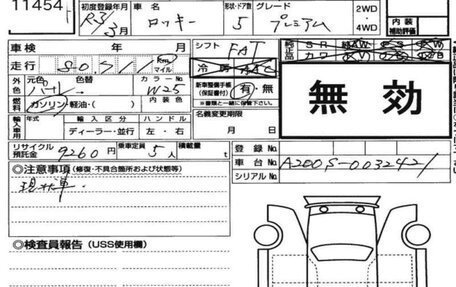 11454
初度登録年月 R3/3月 車名 ロッキー 形状・ドア数 5 グレード プレミアム 2WD・4WD
内装 補助評価
車検 年 月 シフト FAT
走行 Km マイル 冷房 AAC
外色 元色 パール 色替 カラーNo W25 新車整備手帳(保証書付) 有・無
燃料 ガソリン・軽油・( ) 内装色 ※書類と一緒に保管下さい。
輸入車用 年式 輸入区分 ハンドル 名義変更期限
ディーラー・並行 左・右 月 日
無効
リサイクル預託金 9260円 乗車定員 5人 積載量 t 登録No.
車台No. A200S-0032421
シリアルNo.
◎注意事項(修復・不具合箇所および状態等)
現状車.
◎検査員報告(USS使用欄)